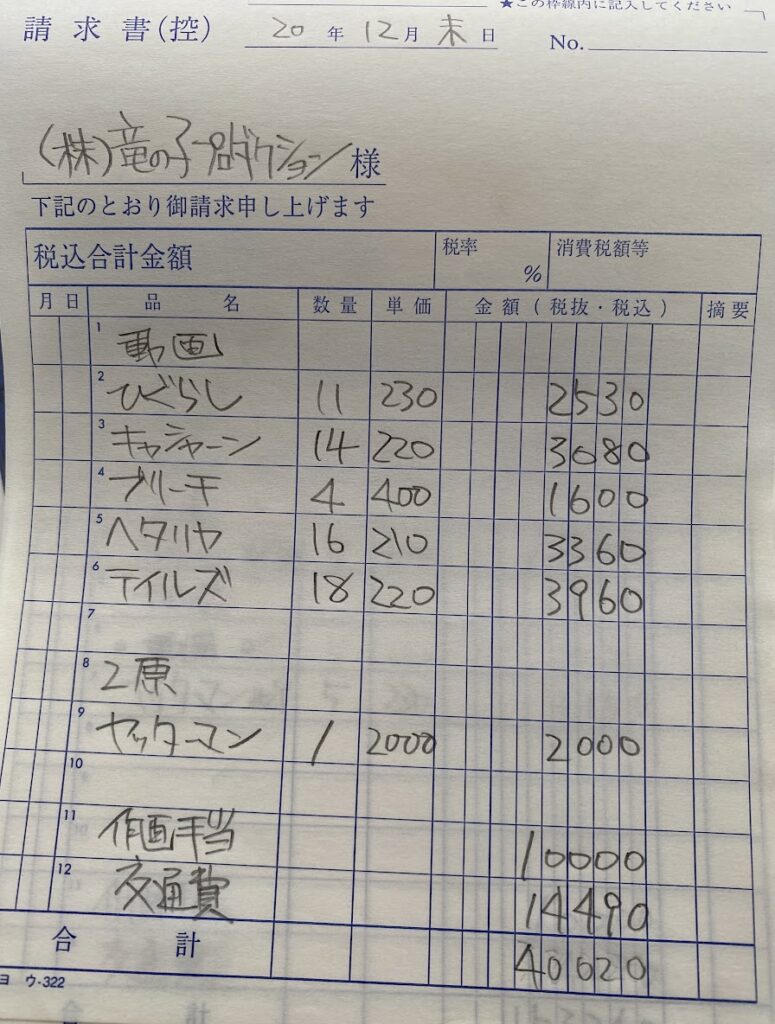 ★この枠線内に記入してください
請求書(控) 20年12月末日 No.
(株)竜の子プロダクション様
下記のとおり御請求申し上げます
税込合計金額 税率 % 消費税額等
月 日 品名 数量 単価 金額(税抜・税込) 摘要
1 動画
2 ひぐらし 11 230 2530
3 キャシャーン 14 220 3080
4 ブリーチ 4 400 1600
5 ヘタリヤ 16 210 3360
6 テイルズ 18 220 3960
7
8 2原
9 ヤッターマン 1 2000 2000
10
11 作画手当 10000
12 交通費 14490
合計 40620
ヨ ウ-322